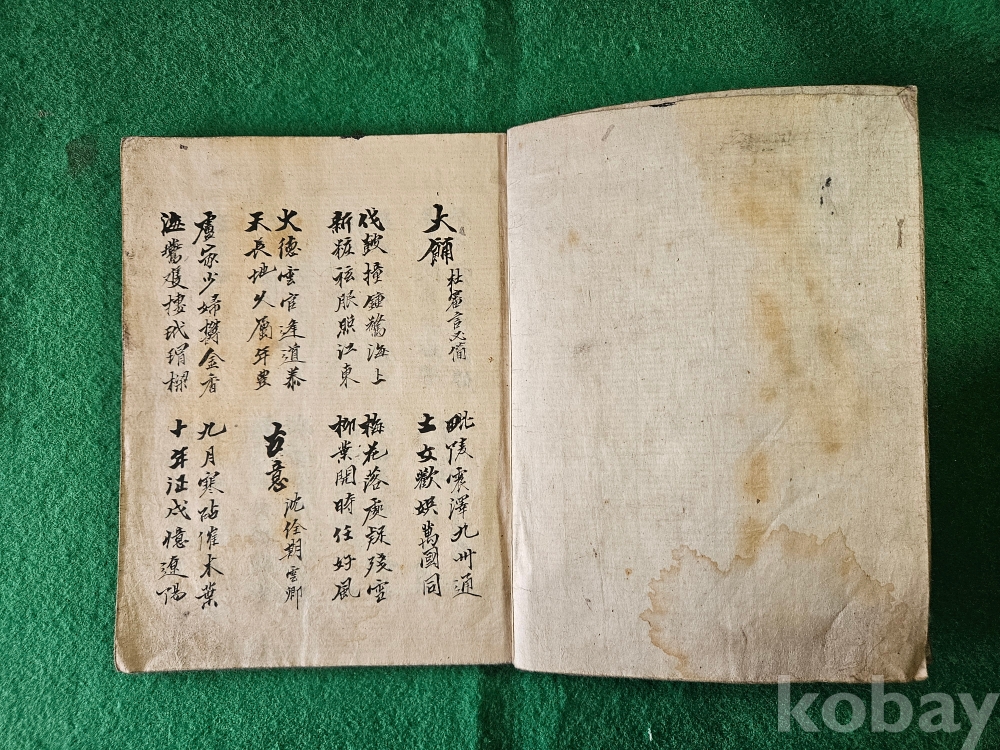 大餔 杜審言 必簡
毗陵震澤九州通
士女歡娛萬國同
伐鼓撞鍾驚海上
新粧袨服照江東
梅花落處疑殘雪
柳葉開時任好風
火德雲官逢道泰
天長地久屬年豊
古意 沈佺期 雲卿
盧家少婦欝金香
海鷰雙棲玳瑁樑
九月寒砧催木葉
十年征戍憶遼陽
kobay